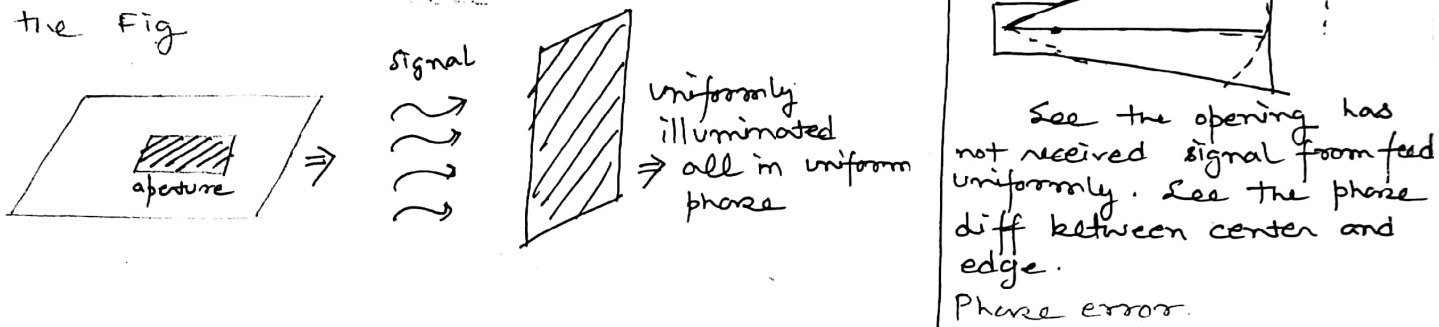 the Fig
aperture
⇒
signal
uniformly
illuminated
⇒ all in uniform
phase
See the opening has
not received signal from feed
uniformly. See the phase
diff between center and
edge.
Phase error.